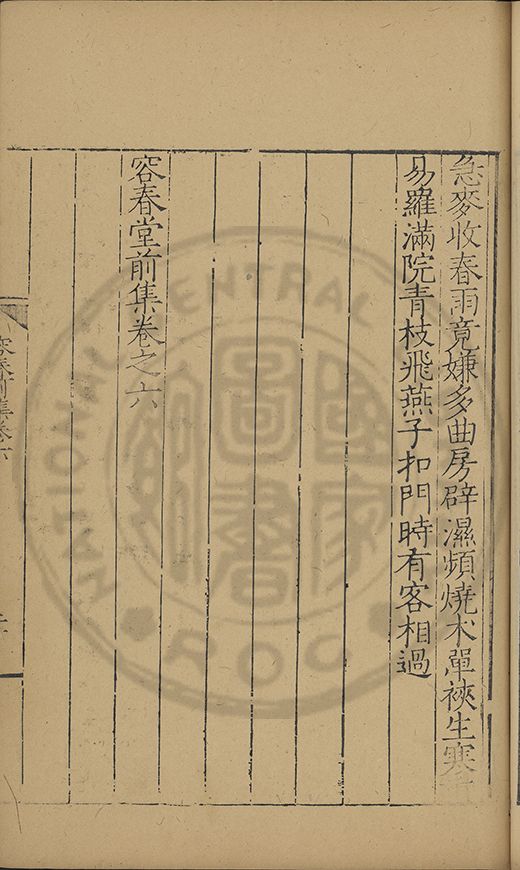 急麥收春雨竟嫌多曲房辟濕頻燒朮單裌生寒
易羅滿院青枝飛燕子扣門時有客相過
容春堂前集卷之六
容春前集卷六
NATIONAL CENTRAL LIBRARY
國家圖書館
ROC